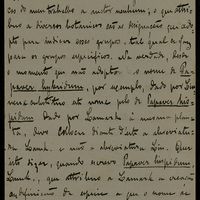 ces do meu trabalho a outro nenhum; o que attri-
a diversos botanicos são as designações que ado-
pto para indicar esses grupos, tal qual se faz
para os grupos especificos. Na verdade, desde
o momento que nós adopta- o nome de Pa-
paver hybridum, por exemplo, dado por Lin-
neu substituto ao nome pelo de Papaver his-
pidum dado por Lamarck á mesma plan-
ta, devo collocar diante d'este a abreviatu-
ra Lamk. e não a abreviatura Lin. Que-
isto dizer, quando escrevo Papaver hispidum
Lamk., que attribuo a Lamarck a creação
da especie a que o nome se